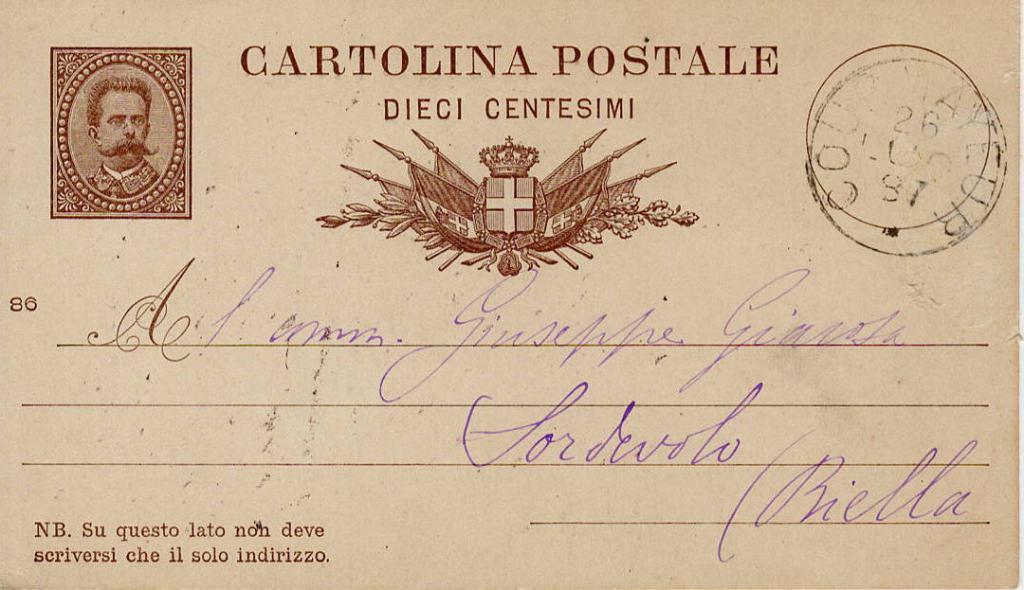 CARTOLINA POSTALE
DIECI CENTESIMI
COURMAYEUR
26
87
86
Al amm. Giuseppe Giacosa
Sordevolo
(Biella
NB. Su questo lato non deve
scriversi che il solo indirizzo.